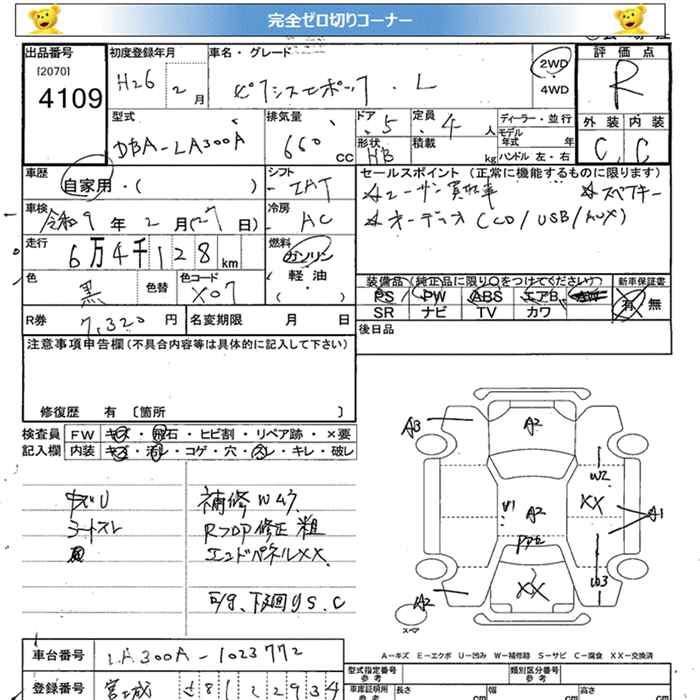 完全ゼロ切りコーナー
出品番号 初度登録年月 車名・グレード 評価点
[2070] 4109 H26 2月 ピクシスエポック . L 2WD 4WD R
型式 排気量 ドア 定員 ディーラー・並行 外装 内装
DBA-LA300A 660 cc 5 4人 モデル年式 年 C C
形状 HB 積載 kg ハンドル 左・右
車歴 シフト セールスポイント (正常に機能するものに限ります)
自家用・( ) IAT ☆ユーザー買取車 ☆スペアキー
車検 冷房 ☆オーディオ(CD/USB/AUX)
令和9年2月(27日) AC
走行 燃料
6万4千128km ガソリン
色 色替 色コード 軽油
黒 X07 ( )
装備品 (純正品に限り○をつけてください) 新車保証書
PS PW ABS エアB AW 有 無
SR ナビ TV カワ
R券 7,320円 名変期限 月 日 後日品
注意事項申告欄(不具合内容等は具体的に記入して下さい)
修復歴 有〔箇所 〕
検査員 FW キズ・飛石・ヒビ割・リペア跡・×要
記入欄 内装 キズ・汚レ・コゲ・穴・スレ・キレ・破レ
補修W4ヶ
RフロP修正 粗
エンドパネルXX
下廻りS.C
A3 A2 W2 XX A1 V1 A2 W3 XX A2
スペア
A-キズ E-エクボ U-凹み W-補修跡 S-サビ C-腐食 XX-交換済
車台番号 LA300A-1023772
型式指定番号 類別区分番号
参考 参考
登録番号
車庫証明用 参考 長さ cm 幅 cm 高さ cm